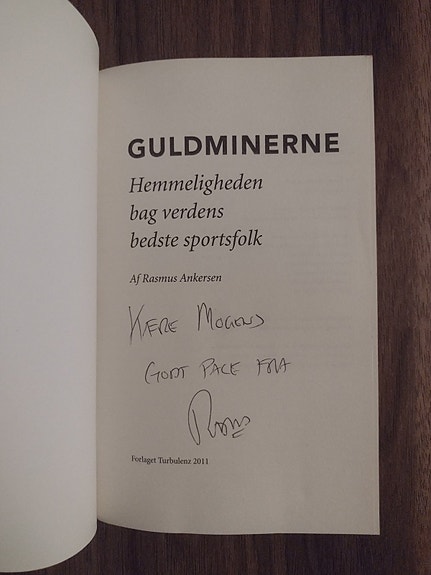 GULDMINERNE
Hemmeligheden
bag verdens
bedste sportsfolk
Af Rasmus Ankersen
KÆRE MOGENS
GODT PACE FRA
Forlaget Turbulenz 2011